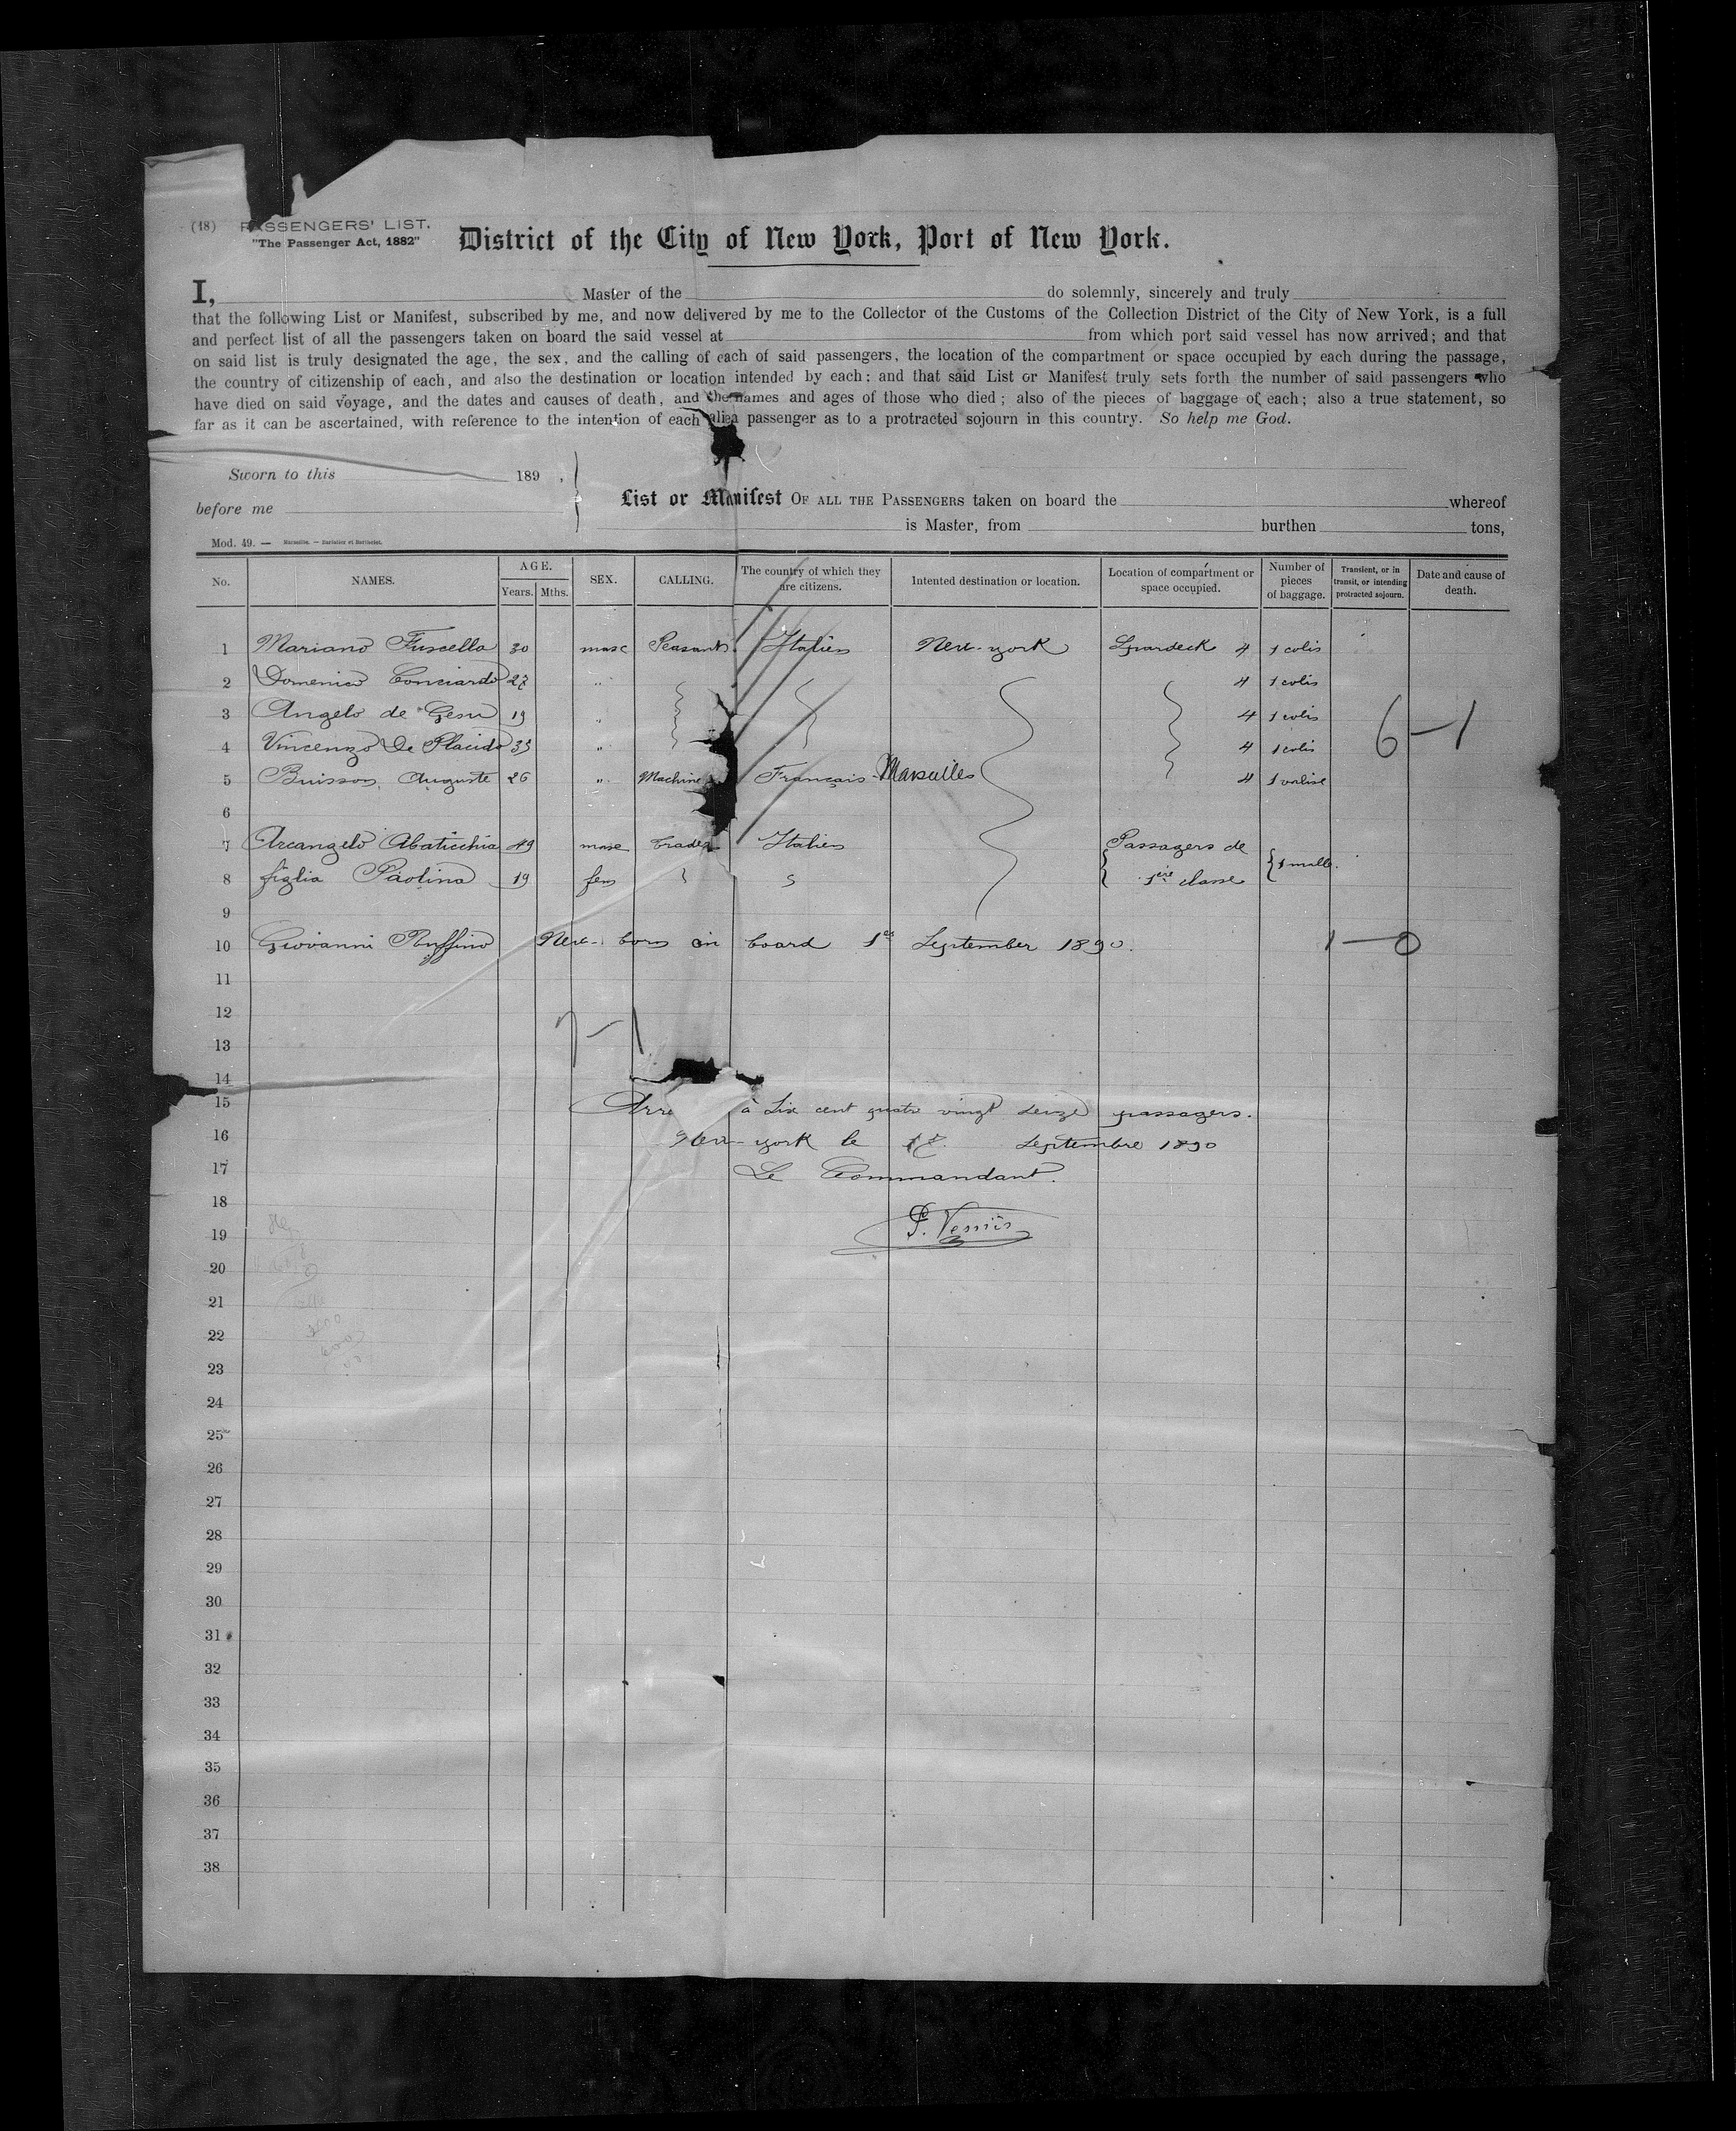 (18) PASSENGERS' LIST.
"The Passenger Act, 1882"
District of the City of New York, Port of New York.
I, Master of the do solemnly, sincerely and truly
that the following List or Manifest, subscribed by me, and now delivered by me to the Collector of the Customs of the Collection District of the City of New York, is a full
and perfect list of all the passengers taken on board the said vessel at from which port said vessel has now arrived; and that
on said list is truly designated the age, the sex, and the calling of each of said passengers, the location of the compartment or space occupied by each during the passage,
the country of citizenship of each, and also the destination or location intended by each: and that said List or Manifest truly sets forth the number of said passengers who
have died on said voyage, and the dates and causes of death, and the names and ages of those who died; also of the pieces of baggage of each; also a true statement, so
far as it can be ascertained, with reference to the intention of each alien passenger as to a protracted sojourn in this country. So help me God.
Sworn to this 189 ,
before me
List or Manifest OF ALL THE PASSENGERS taken on board the whereof
is Master, from burthen tons,
Mod. 49. — Marseille. — Barlatier et Barthelet.
No. NAMES. AGE. Years. Mths. SEX. CALLING. The country of which they are citizens. Intented destination or location. Location of compartment or space occupied. Number of pieces of baggage. Transient, or in transit, or intending protracted sojourn. Date and cause of death.
1 Mariano Fuscella 30 masc Peasants Italien New-york 4 1 colis
2 Domenico Conciardo 27 " 4 1 colis
3 Angelo de Gesu 19 " 4 1 colis
4 Vincenzo De Placido 35 " 4 1 colis
6–1
5 Buisson Auguste 26 " Machine Français Marseilles 4 1 valise
6
7 Arcangelo Abaticchia 49 masc trader Italien Passagers de
8 figlia Paolina 19 fem 1ère classe 1 malle.
9
10 Giovanni Ruffino New-born on board 1er September 1890. 1–0
11
12
7–1
13
14
15 Arre à Six cent quatre vingt seize passagers.
16 New-york le Septembre 1890
17 Le Commandant.
18
19 Vesniès
20
21
22
23
24
25
26
27
28
29
30
31
32
33
34
35
36
37
38